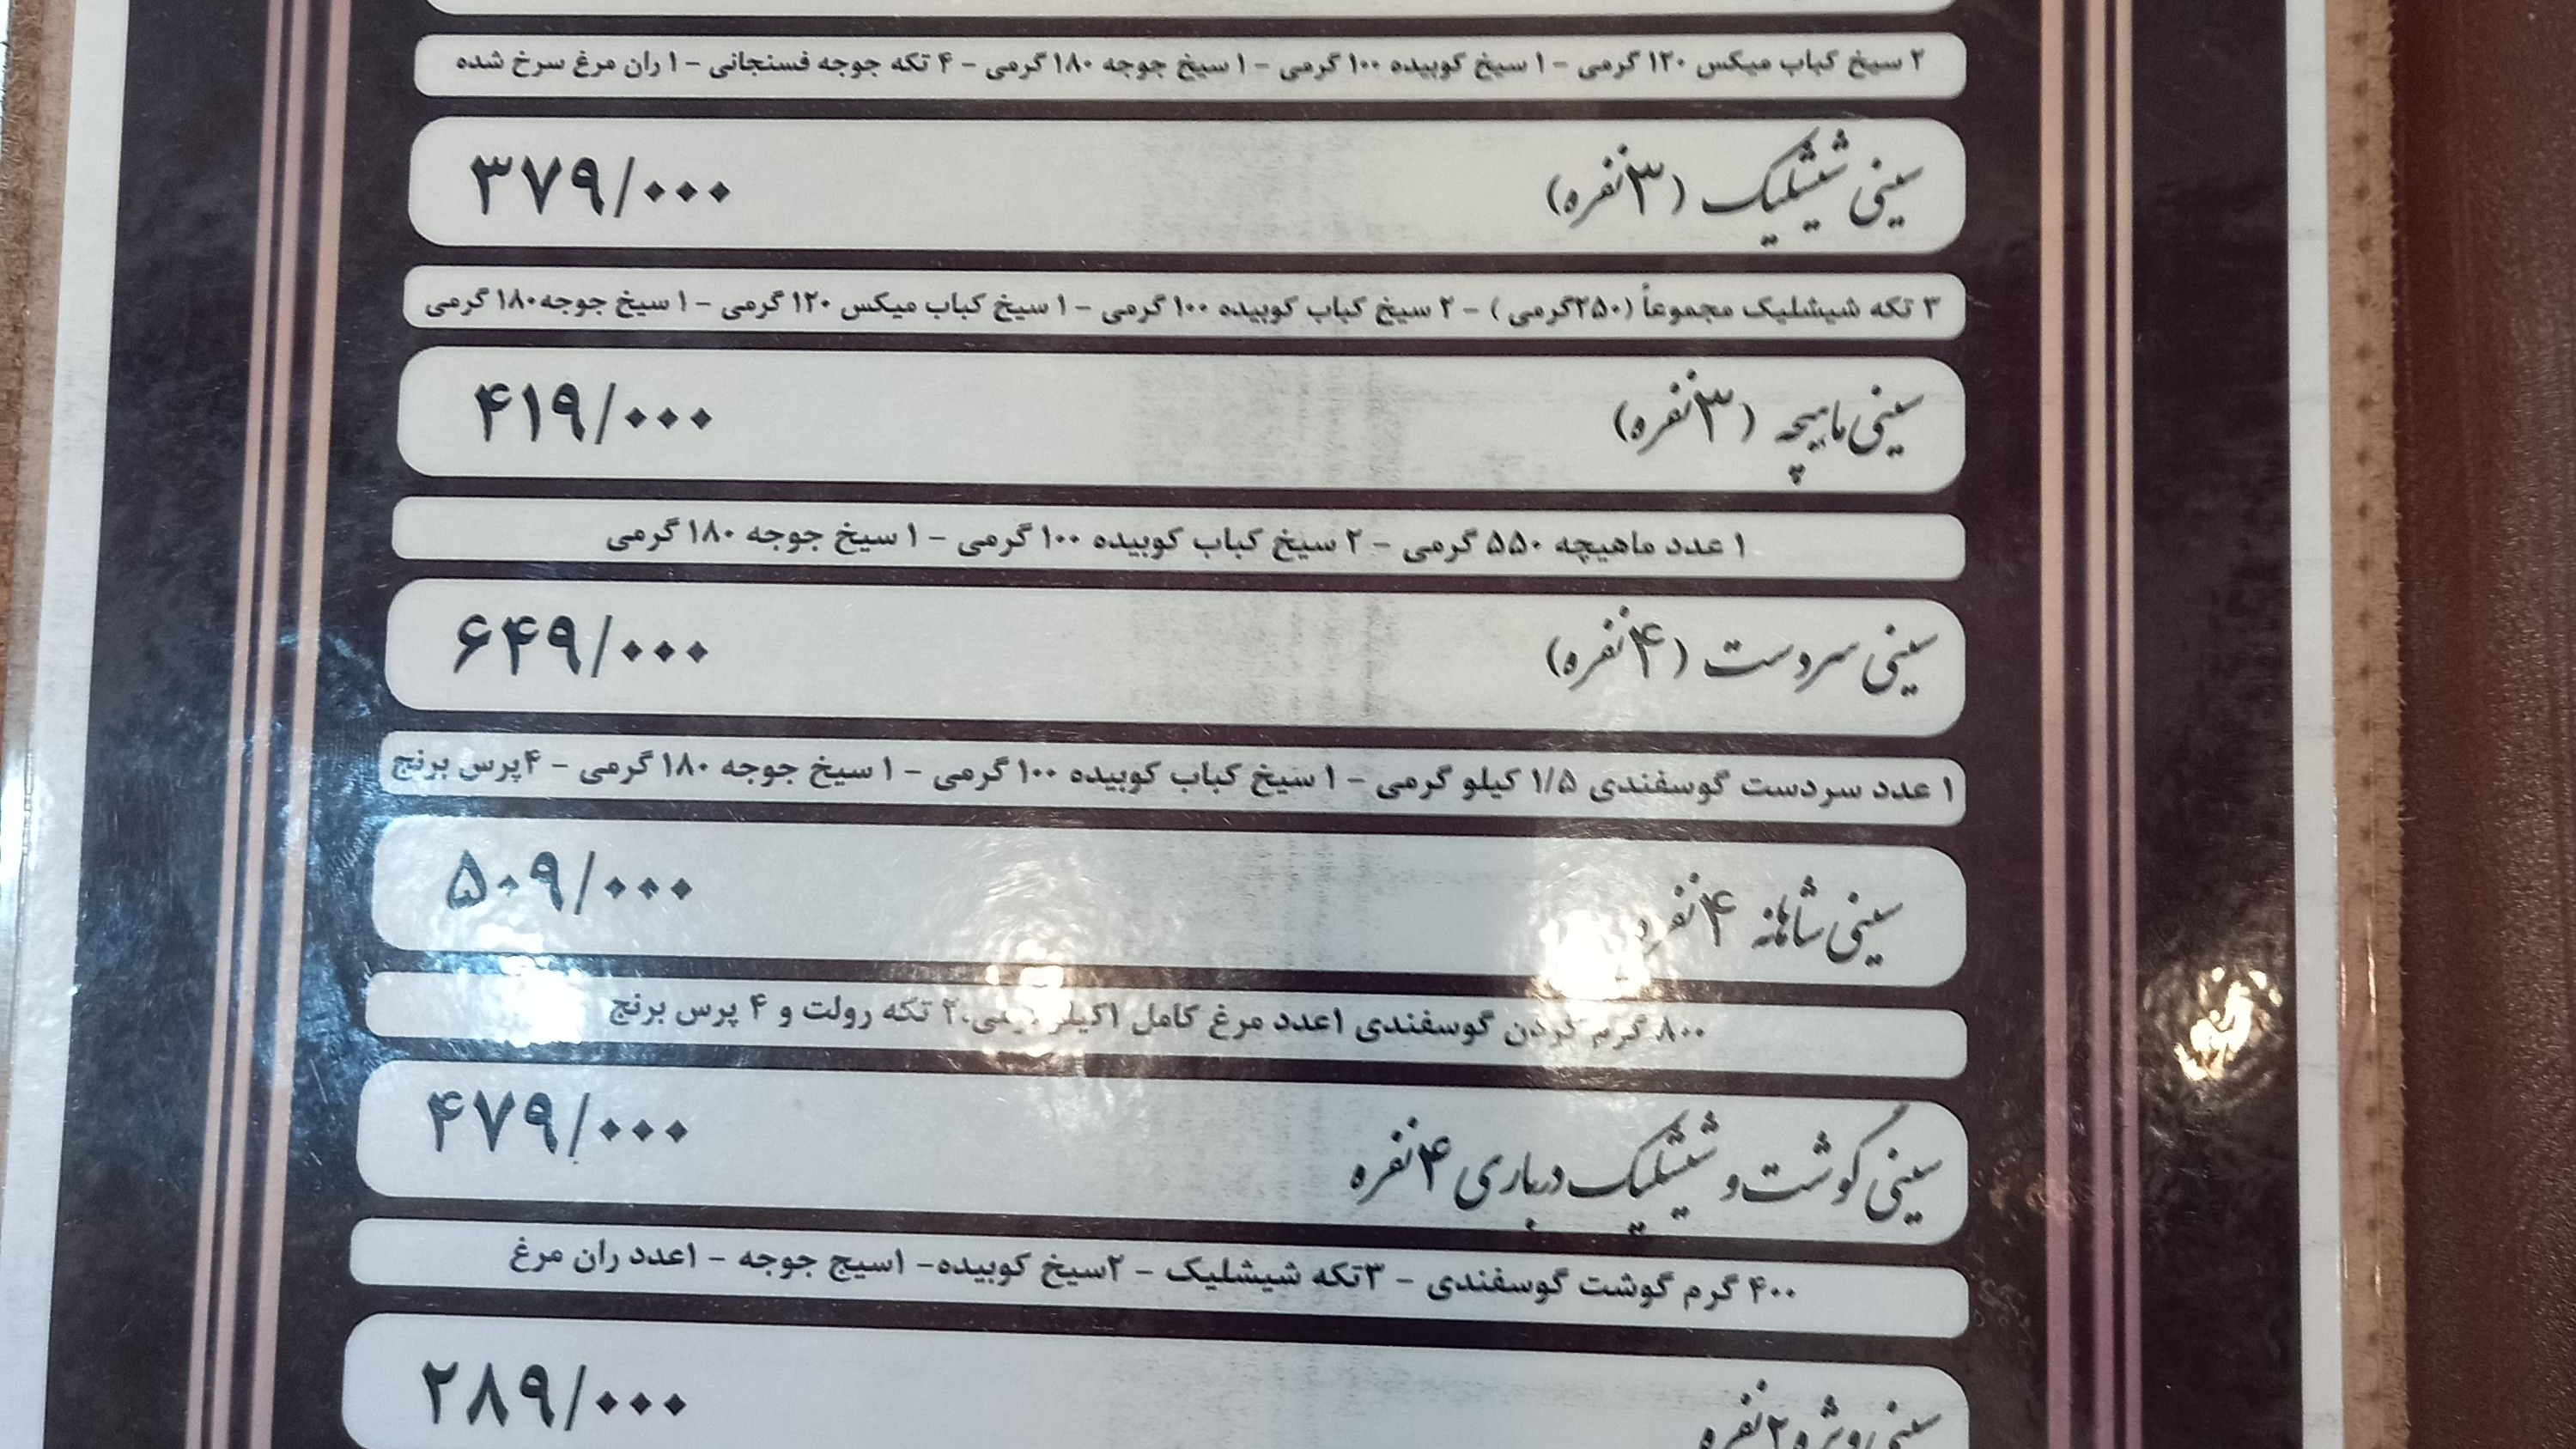 ۲ سیخ کباب میکس ۱۲۰ گرمی - ۱ سیخ کوبیده ۱۰۰ گرمی - ۱ سیخ جوجه ۱۸۰ گرمی - ۴ تکه جوجه فسنجانی - ۱ ران مرغ سرخ شده
سینی شیشلیک (۳نفره) ۳۷۹/۰۰۰
۳ تکه شیشلیک مجموعاً (۲۵۰گرمی ) - ۲ سیخ کباب کوبیده ۱۰۰ گرمی - ۱ سیخ کباب میکس ۱۲۰ گرمی - ۱ سیخ جوجه۱۸۰ گرمی
سینی ماهیچه (۳نفره) ۴۱۹/۰۰۰
۱ عدد ماهیچه ۵۵۰ گرمی - ۲ سیخ کباب کوبیده ۱۰۰ گرمی - ۱ سیخ جوجه ۱۸۰ گرمی
سینی سردست (۴نفره) ۶۴۹/۰۰۰
۱ عدد سردست گوسفندی ۱/۵ کیلو گرمی - ۱ سیخ کباب کوبیده ۱۰۰ گرمی - ۱ سیخ جوجه ۱۸۰ گرمی - ۴پرس برنج
سینی شاهانه ۴نفره ۵۰۹/۰۰۰
۸۰۰ گرم گردن گوسفندی ۱عدد مرغ کامل ۲ تکه رولت و ۴ پرس برنج
سینی گوشت و شیشلیک درباری ۴نفره ۴۷۹/۰۰۰
۴۰۰ گرم گوشت گوسفندی - ۳تکه شیشلیک - ۲سیخ کوبیده- ۱سیج جوجه - ۱عدد ران مرغ
سینی ویژه ۲نفره ۲۸۹/۰۰۰